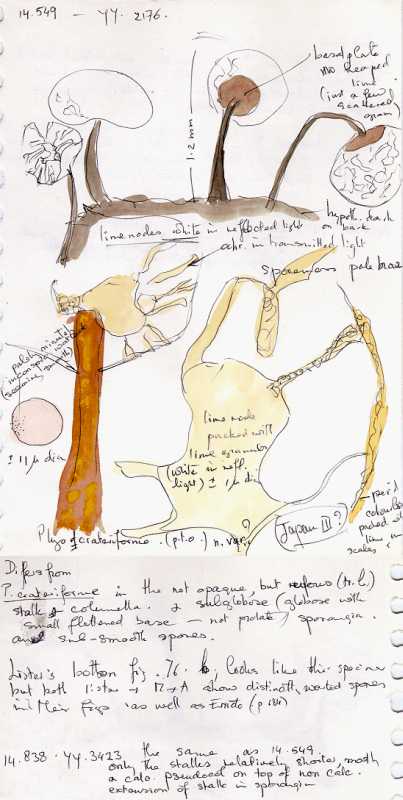 14.549 - YY. 2176.
basal plate
no heaped
lime
(just a few
scattered
gram)
1.2 mm
hypoth. dark
on bark
lime nodes white in reflected light
opr. in transmitted light
spore mass pale brown
palely
(seeming smooth)
± 11 µ dia
lime node
packed with
lime granules
(white in refl.
light) ± 1 µ dia
perid.
colourless
packed
lime in
scales,
Japan III?
Phys. crateriforme. (p.t.o.) n. var.?
Differs from
P. crateriforme in the not opaque, but (tr. l.)
stalk & columella. & subglobose (globose with
small flattened base - not prolate) sporangia.
and sub-smooth spores.
Lister's bottom fig. 76 b. looks like this specimen
but both Lister & M & A show distinctly warted spores
in their figs as well as Emoto (p 184)
14.838. YY.3423 the same as 14.549.
only the stalks relatively shorter, mostly
a calc. pseudocol on top of non calc.
extension of stalk in sporangium